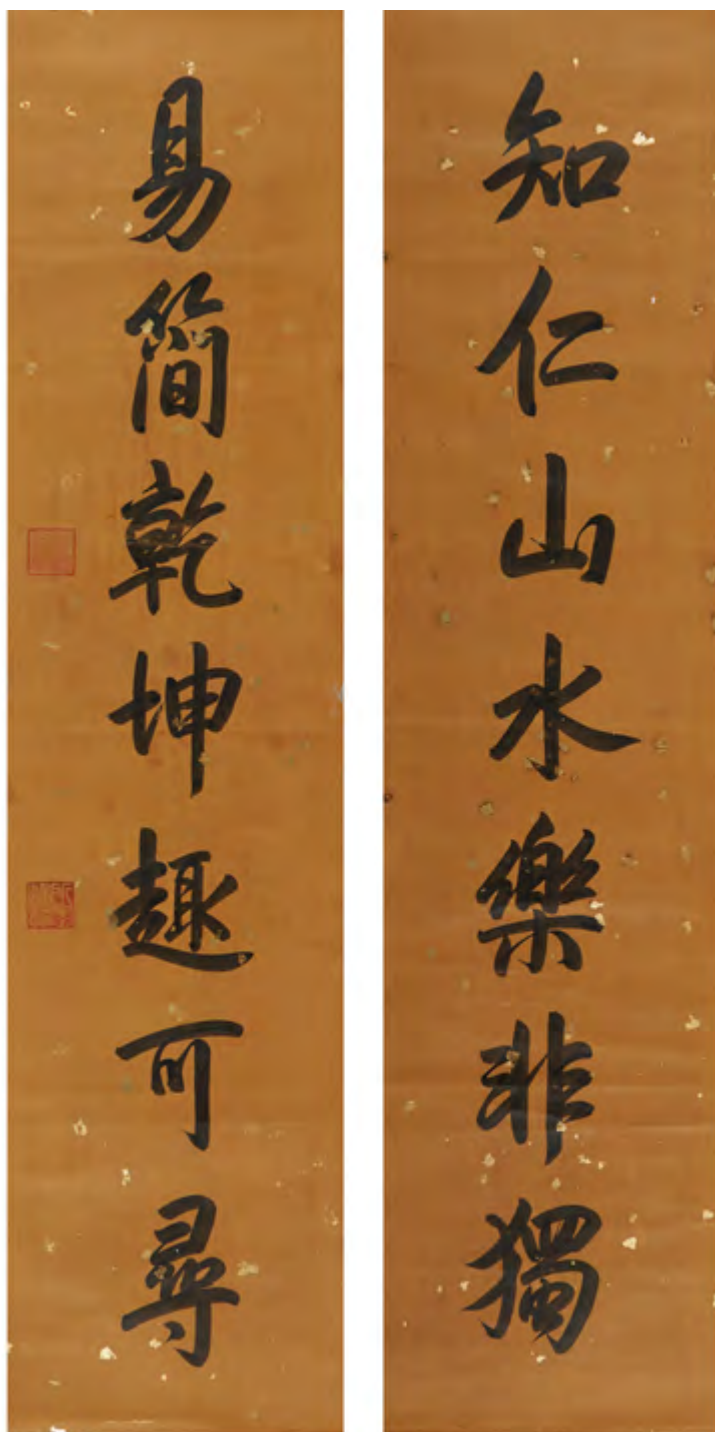 知仁山水樂非獨
易簡乾坤趣可尋